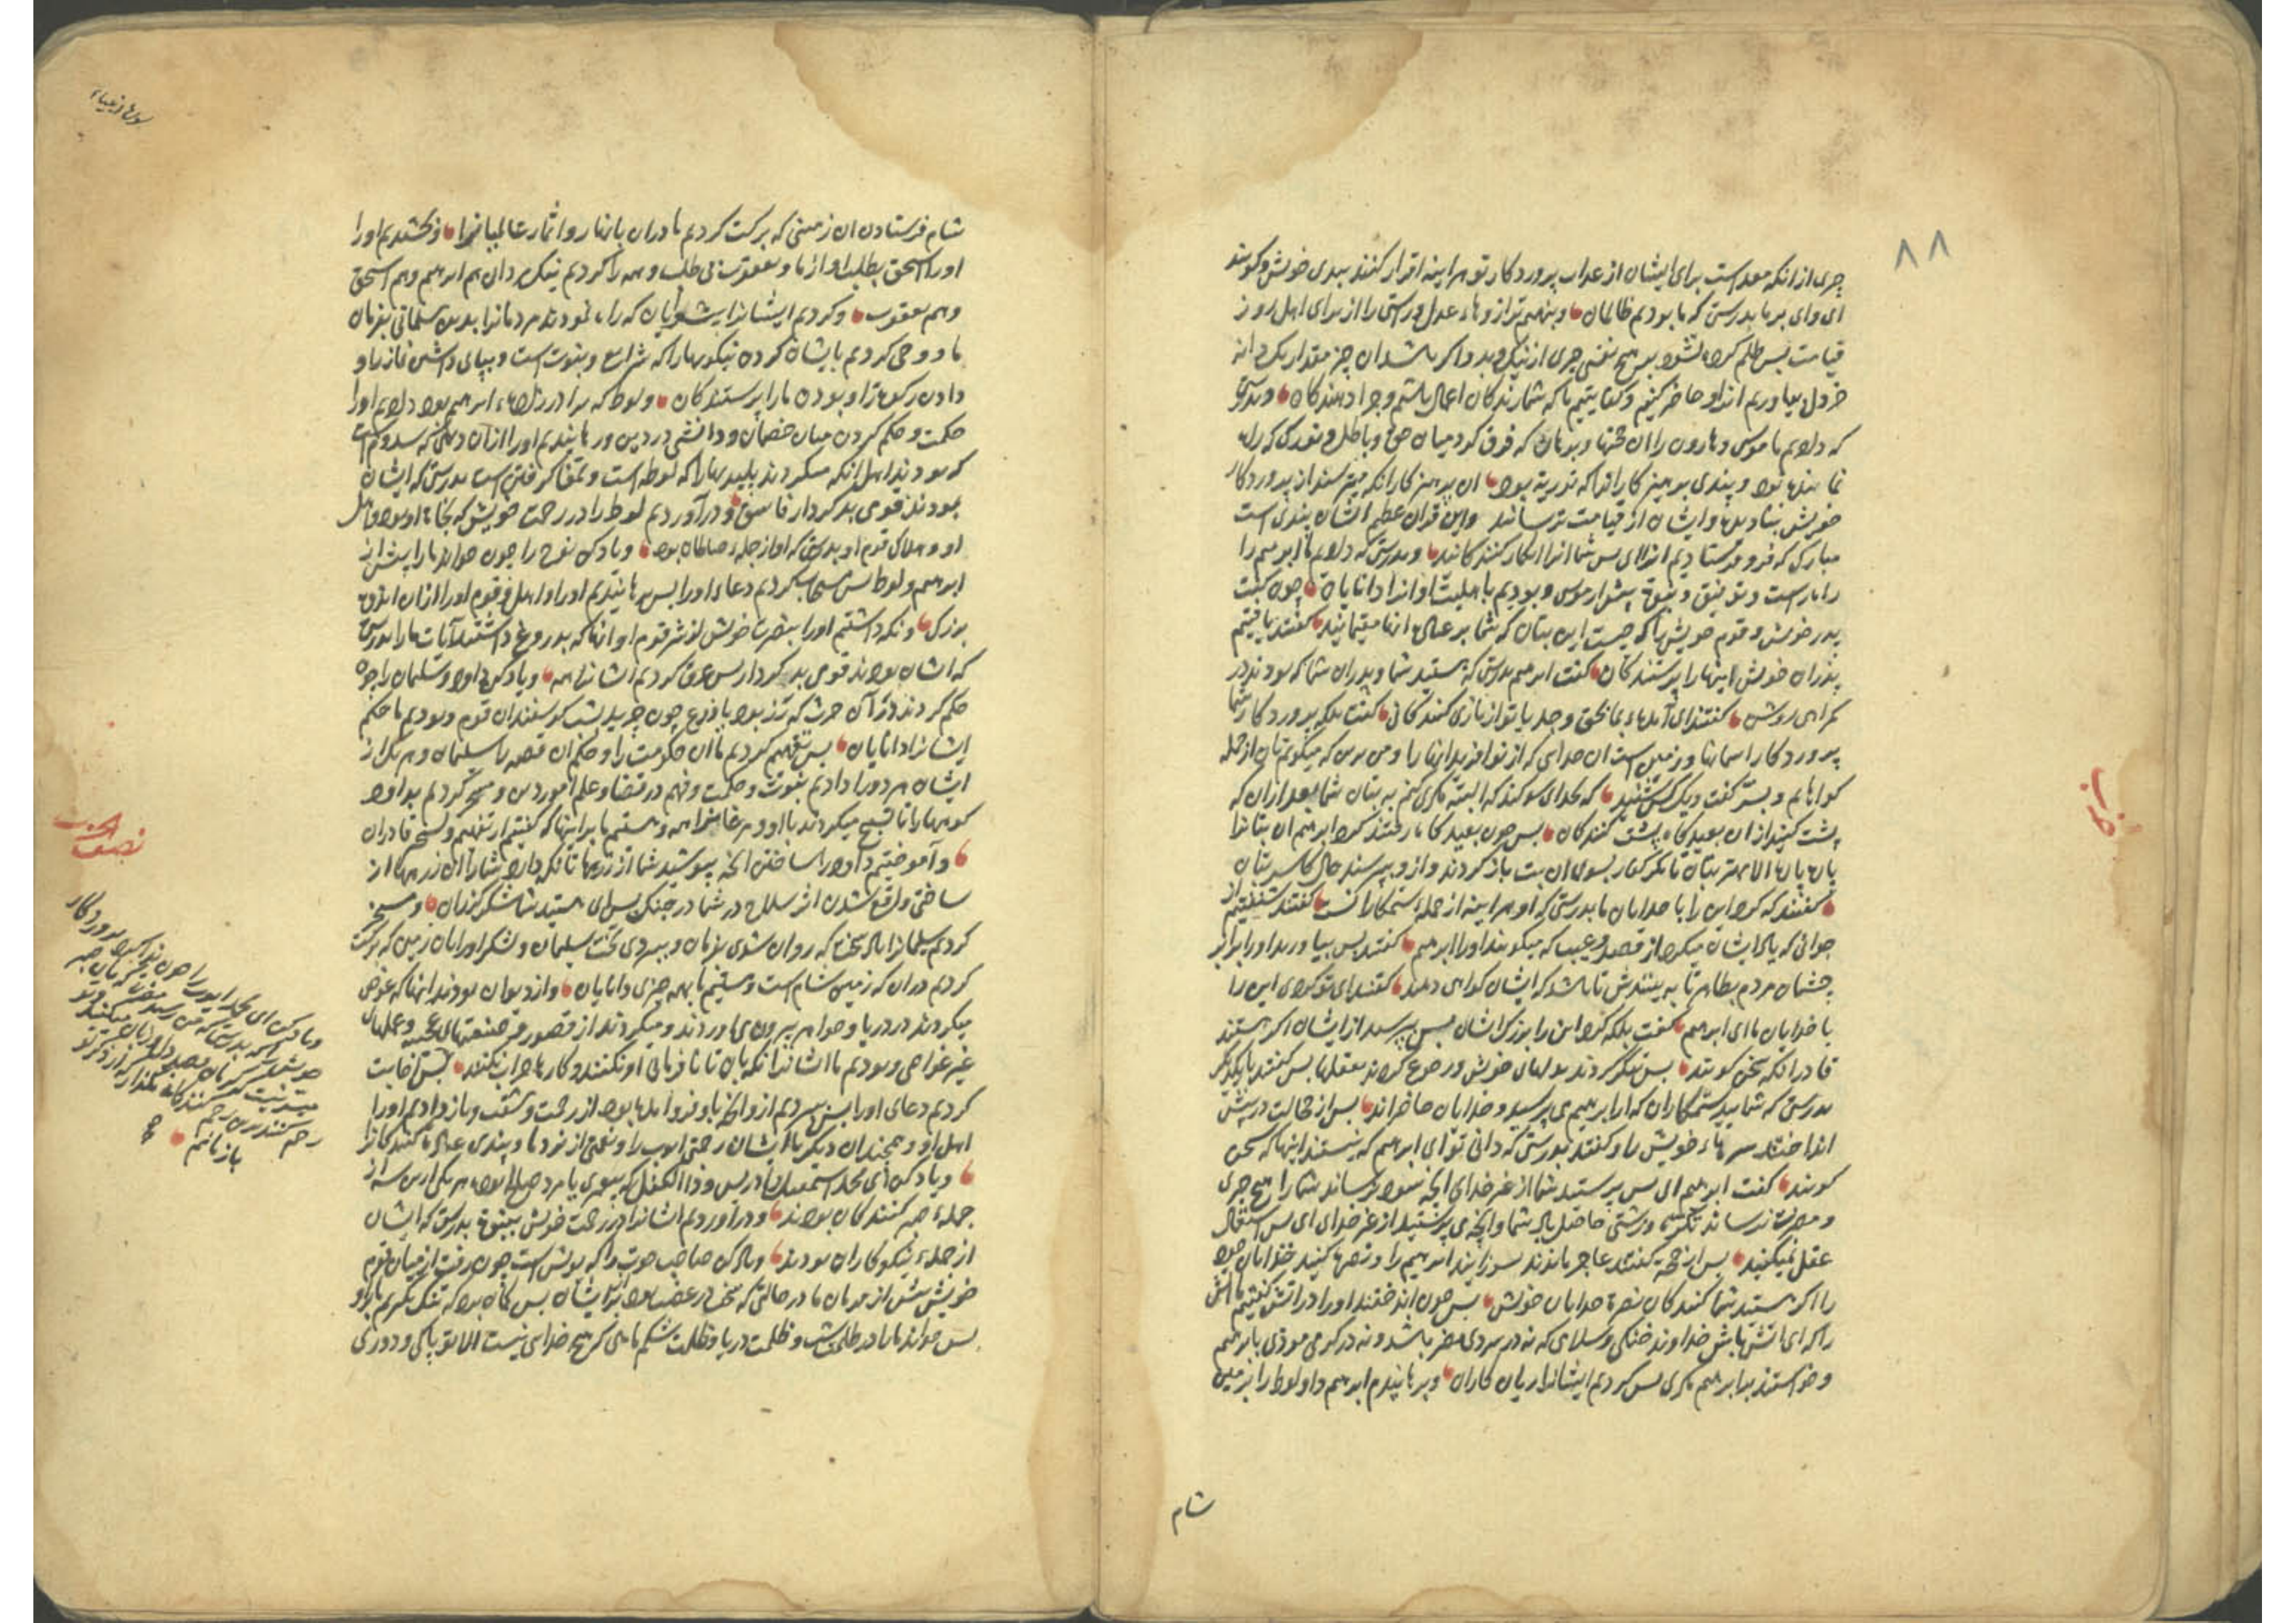 ٨٨
چیزی از آنکه معد است برای ایشان از عذاب پروردگار تو هر اینه اقرار کنند ببدی خویش و کویند
ای وای بر ما بدرستی که ما بودیم ظالمان و بنهیم ترازوهاء عدل و راستی را از برای اهل روز
قیامت پس ظلم کرده نشود بر هیچ نفسی چیزی از نیک و بد و اکر باشد ان چیز مقدار یک دانه
خردل بیاوریم انرا و حاضر کنیم و کفایتیم ما که شمارندکان اعمال باشیم و جزا دهندکان و بدرستی
که دادیم ما موسی و هارون را ان حجتها و برهان که فرق کرد میان حق و باطل و نوری که راه
نماینده بود و پندی پرهیزکارانرا که تدریه بود ان پرهیزکارانکه میترسند از پروردکار
خویش بنادیده و ایشان از قیامت ترسانند و این قران عظیم الشان پندی است
مبارک که فرو فرستادیم انرا ای پس شما انرا انکار کنندکانید و بدرستی که دادیم ما ابرهیم را
راه راست و توفیق و نبوة پیش از موسی و بودیم باهلیت او انرا دانایان چون کفت
پدر خویش و قوم خویش را که چیست این بتان که شما بر عبادة انها مقیمانید کفتند یافتیم
پدران خویش اینها را پرستندکان کفت ابرهیم بدرستی که هستید شما و پدران شما که بودند در
کمراهی روشن کفتند ای آمدهٔ بما بحق و جد یا تو از بازی کنندکانی کفت بلکه پروردکار شما
پروردکار اسمانها و زمین است ان خدای که از نو افرید انها را و من برین که میکویم تان از جمله
کواهانم و بسر کفت دیک کس شنید که بخدای سوکند که البته مکری کنم به بتان شما بعد از ان که
پشت کنید از ان بعیدکاه پشت کنندکان پس چون بعیدکاه رفتند کرد ابرهیم ان بتانرا
پاره پاره الا مهتر بتان تا مکر کفار بسوی ان بت باز کردند و از و پرسند حال کاسر بتان
کفتند که کرد این را با خدایان ما بدرستی که او هر اینه از جملهٔ ستمکاران است کفتند شنفتیم از
جوانی که یاد ایشان میکرد از قصد و عیب که میکویند او را ابرهیم کفتند پس بیاورید او را برابر
چشمان مردم بظاهر تا به بینندش تا باشد که ایشان کواهی دهند کفتند ای تو کردی این را
با خدایان ما ای ابرهیم کفت بلکه کرد این را بزرک ایشان پس پرسید از ایشان اکر هستند
قادر انکه سخن کویند پس بنکر کردند بدلهای خویش و رجوع کردند بعقلها پس کفتند با یکدیکر
بدرستی که شمایید ستمکاران که از ابرهیم می پرسید و خدایان حاضراند پس از خجالت در پیش
انداختند سرهاء خویش را و کفتند بدرستی که دانی تو ای ابرهیم که نیستند اینها که سخن
کویند کفت ابرهیم ای پس پرستید شما از غیر خدای آنچه سود نرساند شما را هیچ چیزی
و مضرت نرساند و زشتی حاصل باد شما و آنچه می پرستید از غیر خدای ای پس استعمال
عقل نمیکنید پس از حجة کفتند عاجز ماندند بسوزانید ابرهیم را و نصرة کنید خدایان خود
را اکر هستید شما کنندکان نصرة خدایان خویش پس چون انداختند او را در اتش کفتیم ما اتش
را که ای اتش باش خداوند خنکی و سلامی که نه در سردی مضر باشد و نه در کرمی موذی بابرهیم
و خواستند بابرهیم مکری پس کردیم ایشانرا زیان کاران و برهانیدیم ابرهیم و لوط را بزمین
شام
حزب
سورة انبیاء
شام فرستادن ان زمینی که برکت کردیم ما دران بانهار و اثمار عالمیانرا و بخشیدیم او را
او را اسحق بطلب او از ما و یعقوب بی طلب و همه را کردیم نیک مردان هم ابرهیم و هم اسحق
و هم یعقوب و کردیم ایشانرا پیشوایان که راه نمودند مردمانرا بدین مسلمانی بفرمان
ما و وحی کردیم بایشان کردن نیکویها را که شرایع و نبوت است و بپای داشتن نماز را و
دادن زکوة را و بودن ما را پرستندکان و لوط که برادر زادهٔ ابرهیم بود دادیم او را
حکمت و حکم کردن میان خصمان و دانشی در دین و رهانیدیم او را از آن دهی که سدوم است
که بودند اهل انکه میکردند پلیدیها را که لواطه است و تحفا کرفتن است بدرستی که ایشان
بودند قومی بدکردار فاسق و درآوردیم لوط را در رحمت خویش که نجاة او بود و اهل
او و هلاک قوم او بدرستی که او از جملهٔ صالحان بود و یاد کن نوح را چون خواند ما را پیش از
ابرهیم و لوط پس مستجاب کردیم دعاء او را پس برهانیدیم او را و اهل و قوم او را از ان اندوه
بزرک و نکه داشتیم او را بنصرت خویش از شر قوم او انها که بدروغ داشتند آیات ما را بدرستی
که ایشان بودند قومی بدکردار پس غرق کردیم ایشانرا همه و یاد کن داود و سلیمان را چون
حکم کردند در آن حرث که رز بود یا زرع چون چریدند بشب کوسفندان قوم و بودیم ما حکم
ایشانرا دانایان پس تفهیم کردیم ما ان حکومت را و حکم ان قصه را سلیمان و هر یک از
ایشان هر دو را دادیم نبوت و حکمت و فهم در قضا و علم امور دین و مسخر کردیم بداود
کوهها را تا تسبیح میکردند با او و مرغانرا همه و هستیم ما بر اینها که کفتیم از تفهیم و تسخیر قادران
و آموختیم داود را ساختن آنچه پوشید شما از زرهها تا نکه دارد شما را ان زرهها از
ساختی واقع شدن اثر سلاح در شما در جنک پس ای هستید شما شکرکنندکان و مسخر
کردیم سلیمانرا باد سخت که روان شوی بفرمان و ببردی تخت سلیمان و لشکر او را بان زمین که برکت
کردیم دران که زمین شام است و هستیم ما بهمه چیزی دانایان و از دیوان بودند انها که غوص
میکردند در دریا و جواهر بیرون می اوردند و میکردند از قصور و صنعتهای عجیبه و عملهای
غیر غواصی و بودیم ما ایشانرا نکه بان تا نافرمانی او نکنند و کارها خراب نکنند پس اجابت
کردیم دعای او را پس ببردیم از و آنچه باو فرو آمده بود از زحمت و تعب و باز دادیم او را
اهل او و همچندان دیکر با ایشان رحمتی ایوب را و نعمتی از نزد ما و پندی عبادة کنندکانرا
و یاد کن ای محمد اسمعیل و ادریس و ذا الکفل که پیغمبری یا مردی صالح بود هر یکی از این سه از
جملهٔ صبر کنندکان بودند و دراوردیم ایشانرا در رحمت خویش بنبوة بدرستی که ایشان
از جملهٔ نیکوکاران بودند و یاد کن صاحب حوت را که یونس است چون برفت از میان قوم
خویش پیش از فرمان ما در حالتی که سخت در غضب بود بر ایشان پس کمان برد که تنک نکیریم بر او
پس خواند ما را در ظلمت شب و ظلمت دریا و ظلمت شکم ماهی که هیچ خدای نیست الا تو پاکی و دوری
نصف الحزب
و یاد کن ای محمد ایوب را چون ندا کرد پروردکار
خویش را که بدرستی که من رسید مضرت
رحم کنندکان
باز نمانم